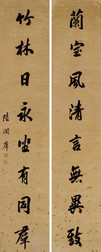 蘭室風清言無異致
竹林日永坐有同群
陸潤庠